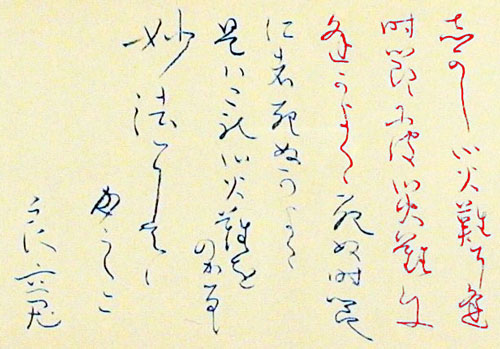 志かし災難に逢
時節には災難に
逢うかよく候 死ぬ時節
に者死ぬかよく候
是ハこれ災難を
のかるゝ
妙法にて候
かしこ